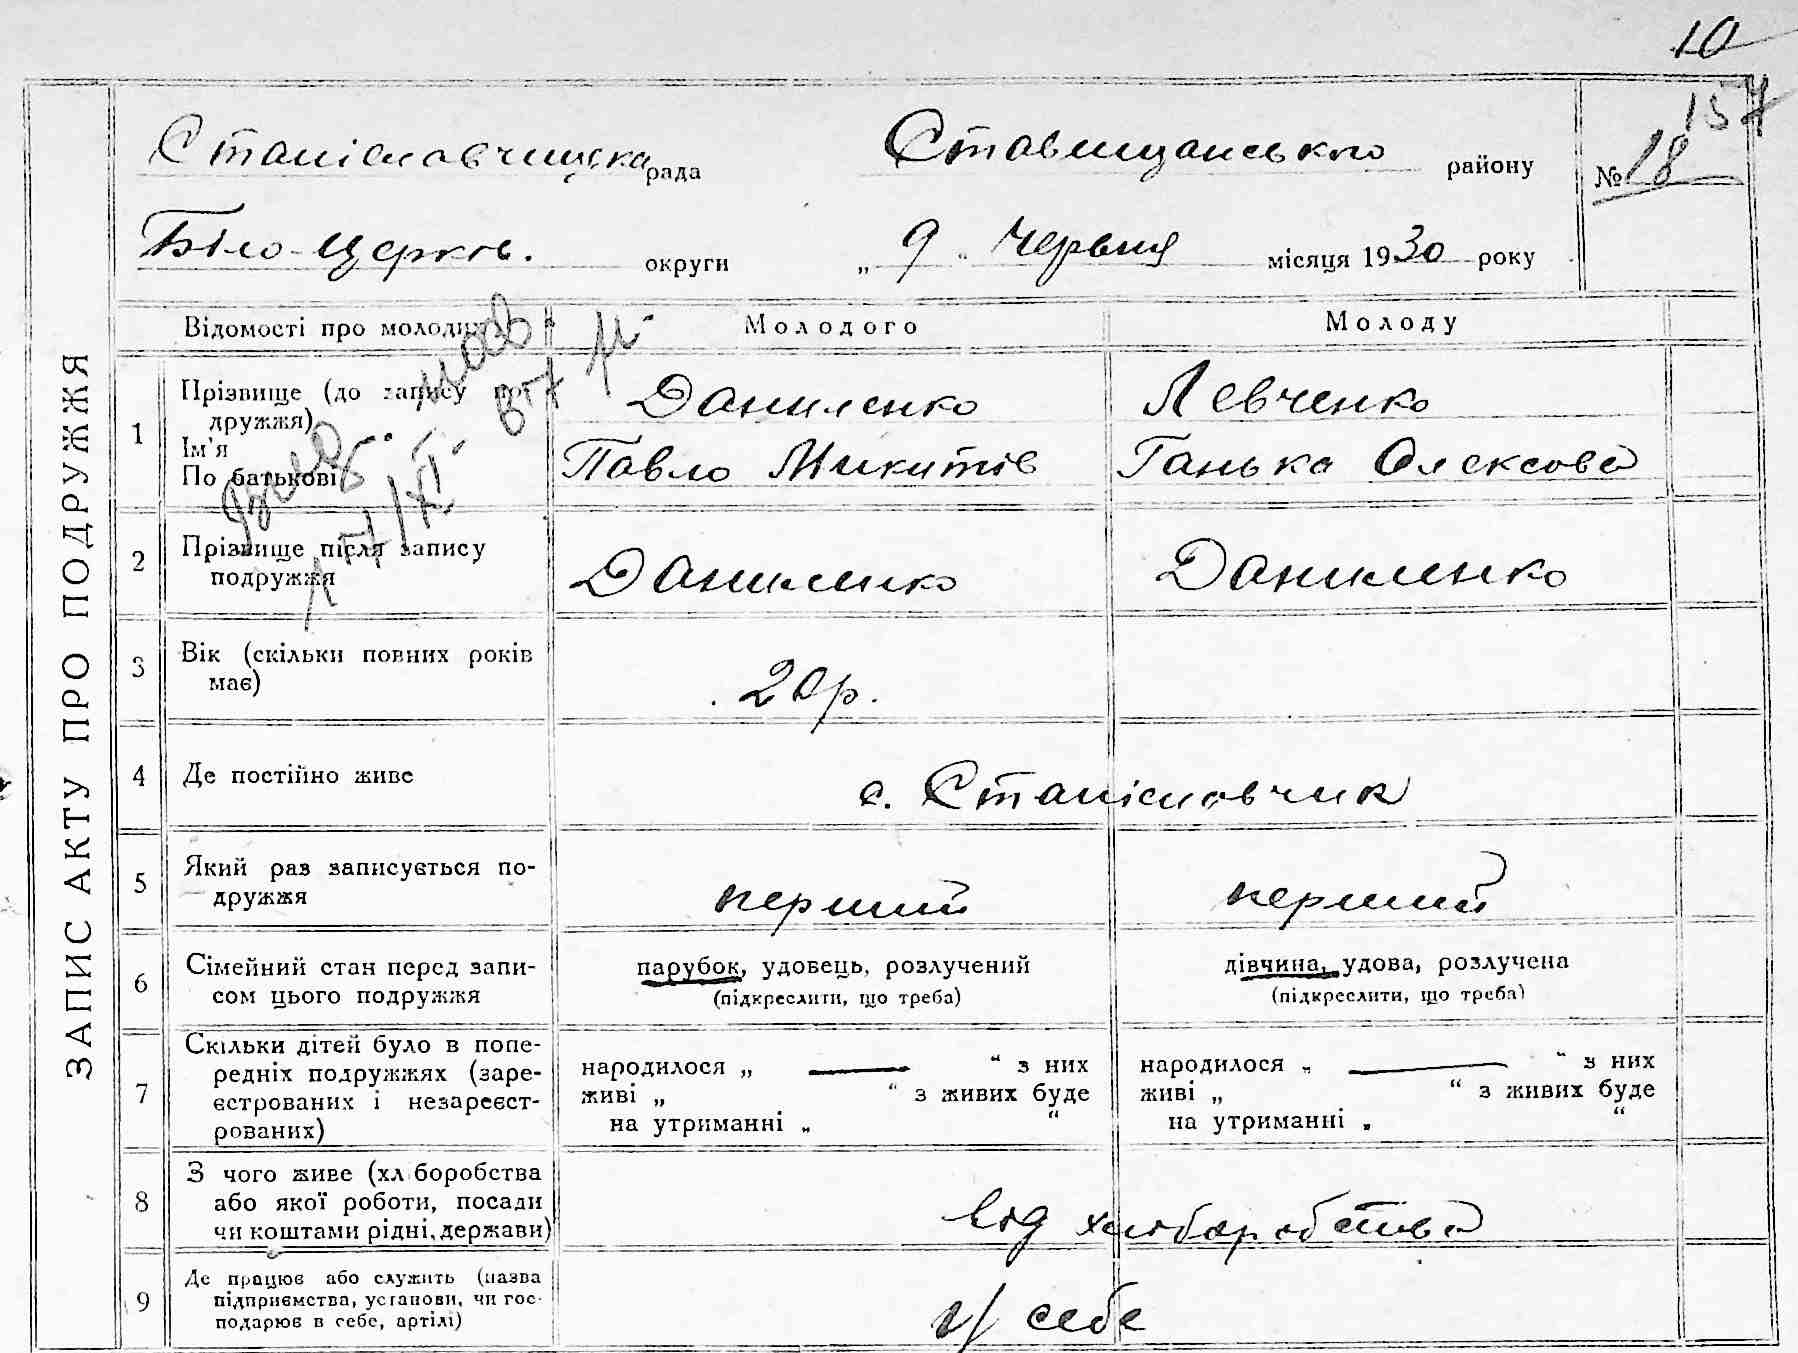 10
157
Станіславчицька рада Ставищанського району № 18
Біло-Церків. округи „ 9 “ Червня місяця 1930 року
Відомості про молодих Молодого Молоду
ЗАПИС АКТУ ПРО ПОДРУЖЖЯ
1 Прізвище (до запису по- Даниленко Левченко
дружжя)
Ім'я
По батькові Павло Микитів Ганька Олексова
2 Прізвище після запису
подружжя Даниленко Даниленко
3 Вік (скільки повних років
має) 20 р.
4 Де постійно живе с. Станіславчик
5 Який раз записується по-
дружжя перший перший
6 Сімейний стан перед запи- парубок, удовець, розлучений дівчина, удова, розлучена
сом цього подружжя (підкреслити, що треба) (підкреслити, що треба)
7 Скільки дітей було в попе-
редніх подружжях (заре- народилося „ — “ з них народилося „ — “ з них
єстрованих і незареєст- живі „ “ з живих буде живі „ “ з живих буде
рованих) на утриманні „ “ на утриманні „ “
8 З чого живе (хліборобства
або якої роботи, посади
чи коштами рідні, держави) від хліборобства
9 Де працює або служить (назва
підприємства, установи, чи гос-
подарює в себе, артілі) в/ себе